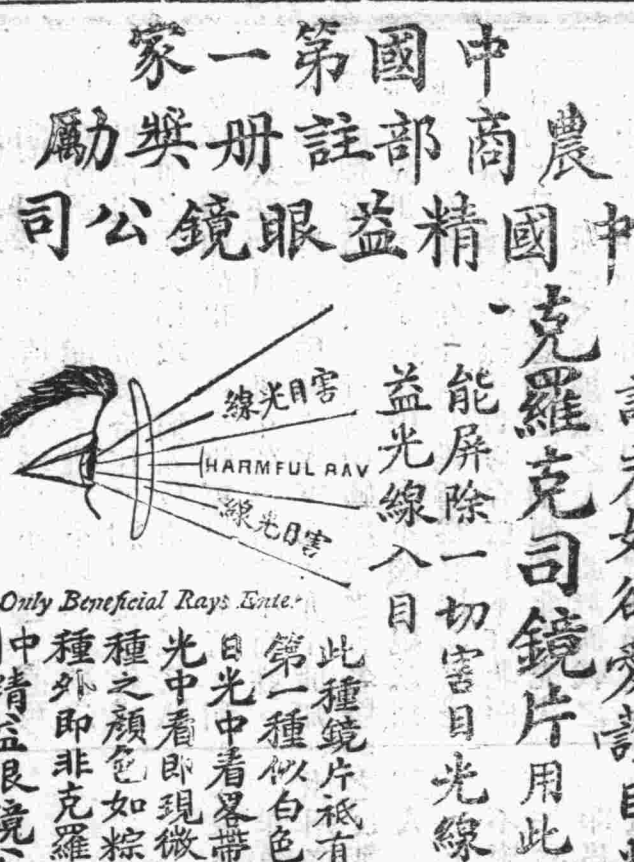 中國第一家
農商部註册獎勵
中國精益眼鏡公司
克羅克司鏡片用此
能屏除一切害目光線
益光線入目
害目光線
HARMFUL RAY
害目光線
Only Beneficial Rays Enter
此種鏡片祇有
第一種似白色
日光中看畧帶
光中看即現微
種之顏色如粽
種外即非克羅
中精益眼鏡